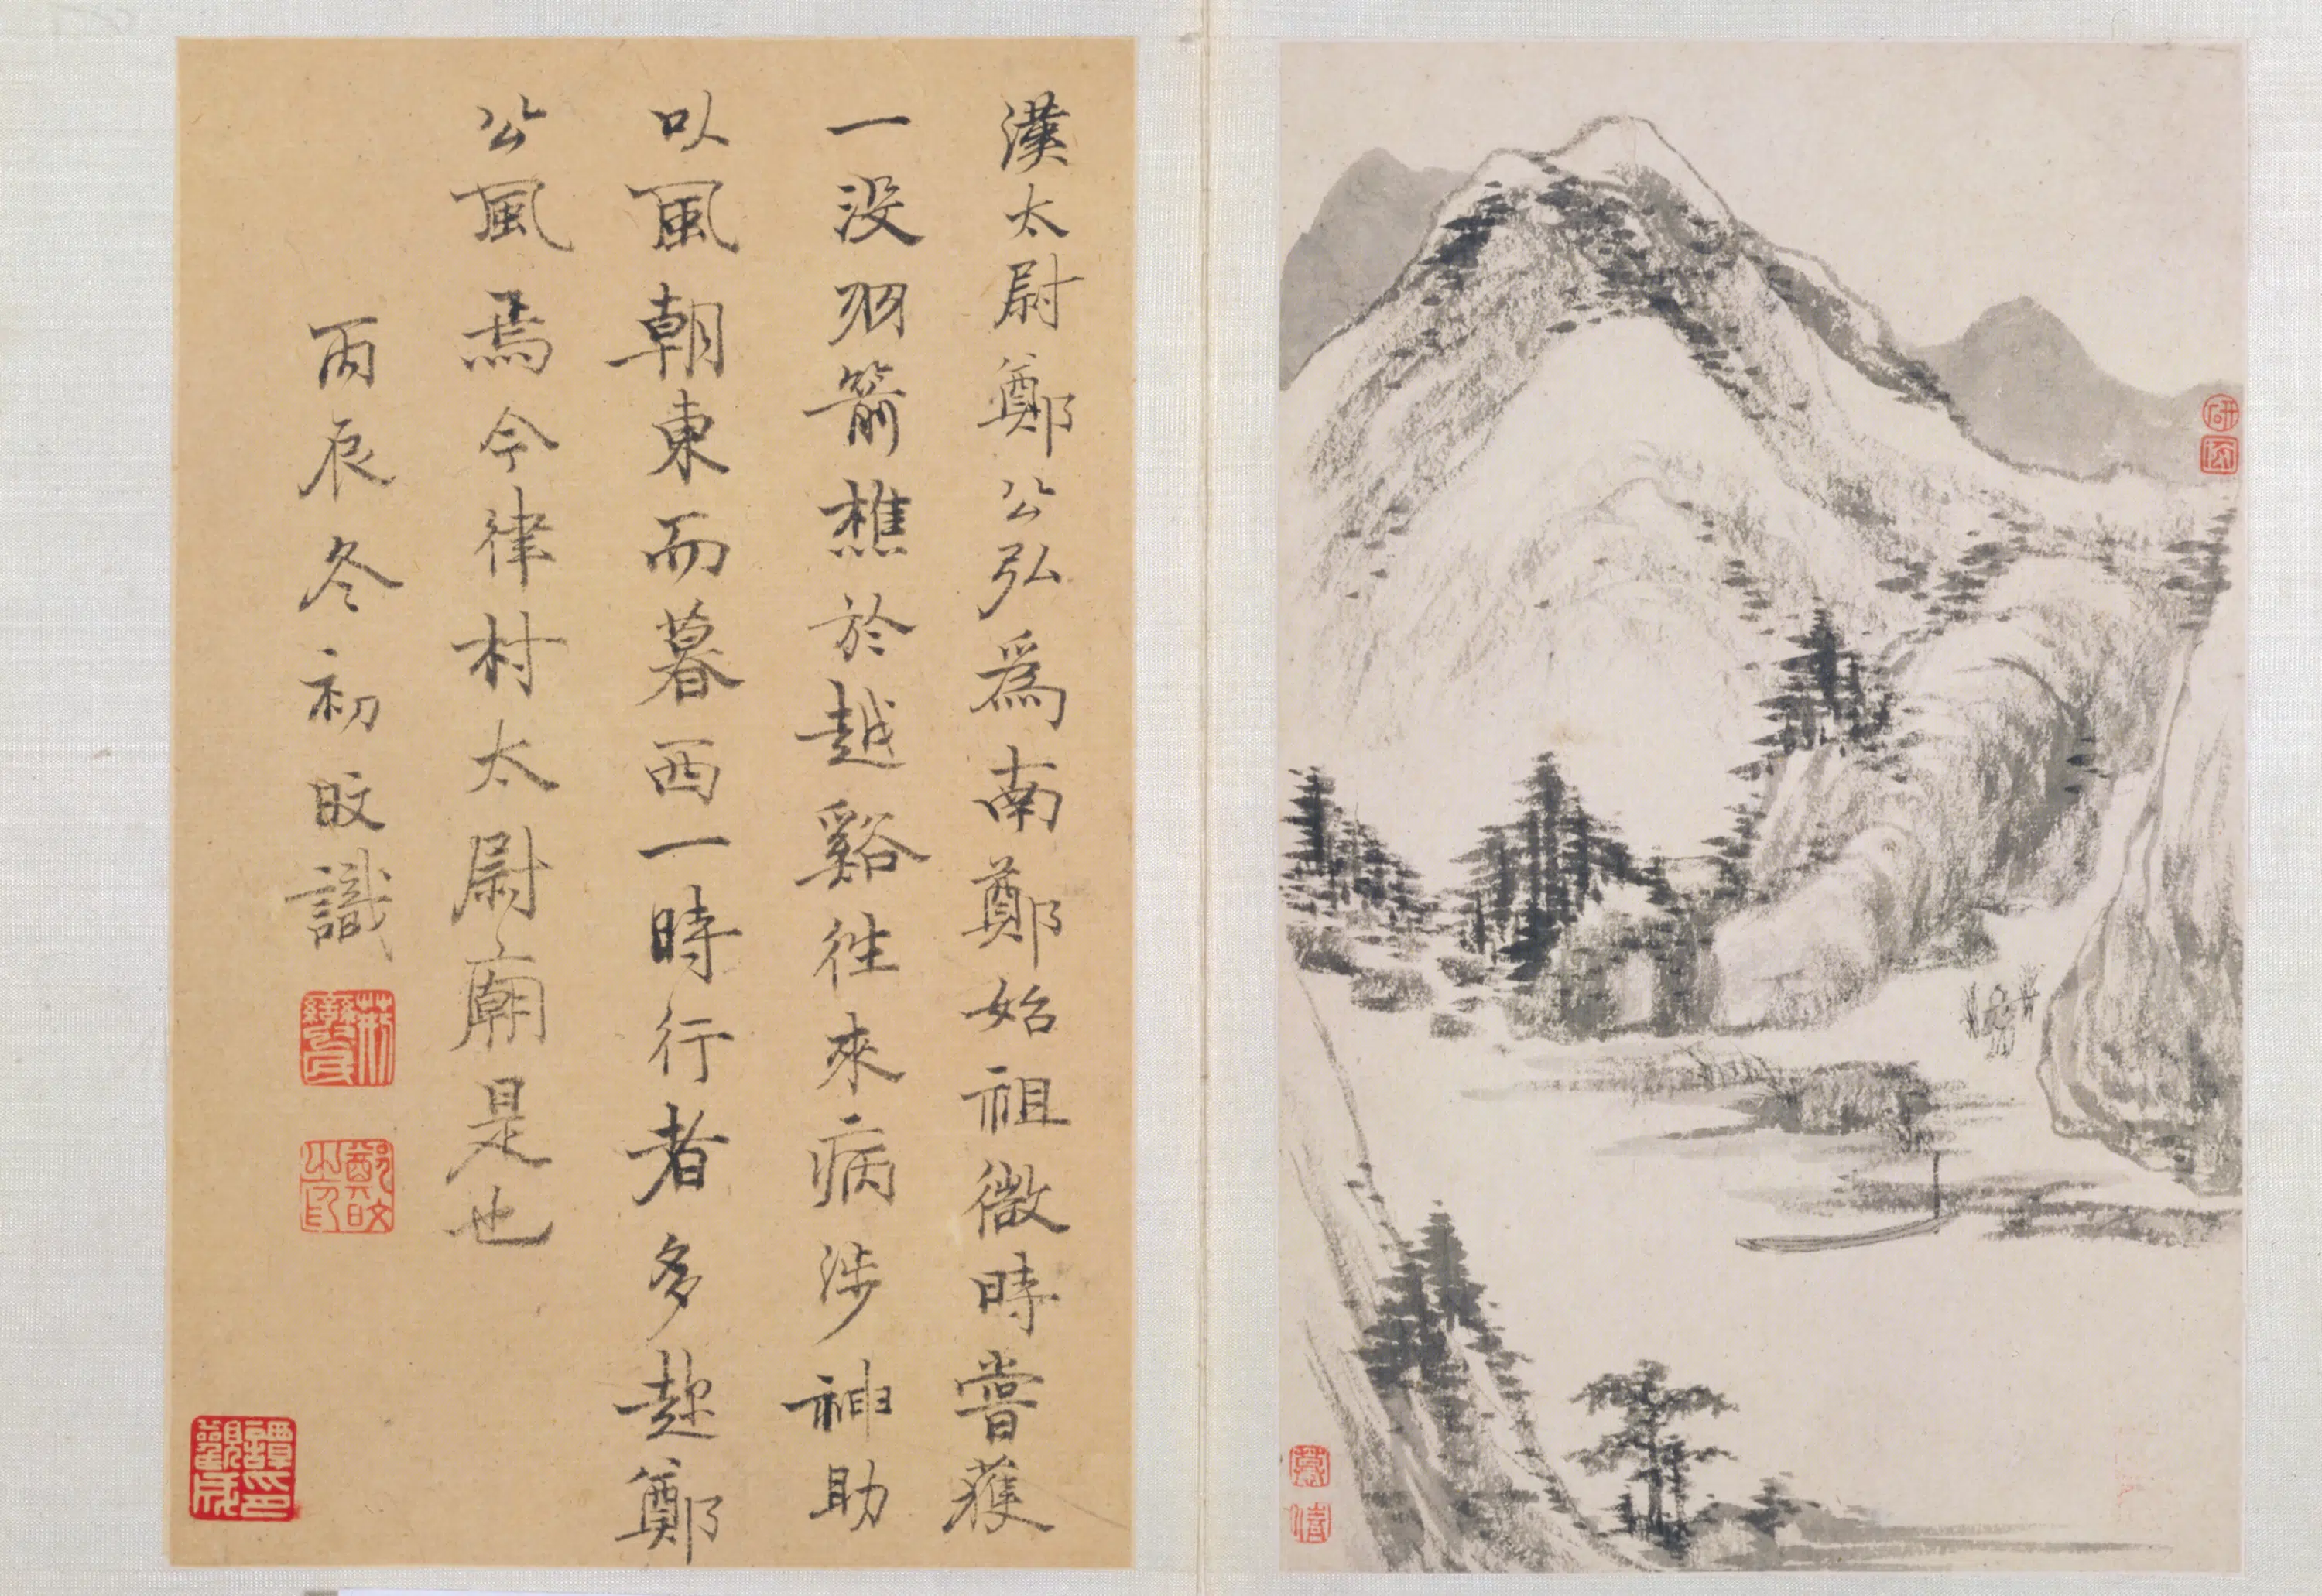 漢太尉鄭公弘爲南鄭始祖微時嘗獲
一没羽箭樵於越谿往來病涉神助
以風朝東而暮西一時行者多趂鄭
公風焉今律村太尉廟是也
丙辰冬初旼識
鄭旼之印
譚觀成印